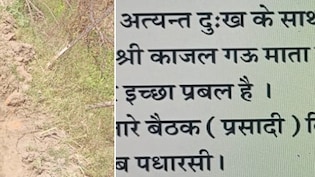 अत्यन्त दुःख के साथ
श्री काजल गऊ माता
इच्छा प्रबल है ।
बैठक ( प्रसादी )
पधारसी।